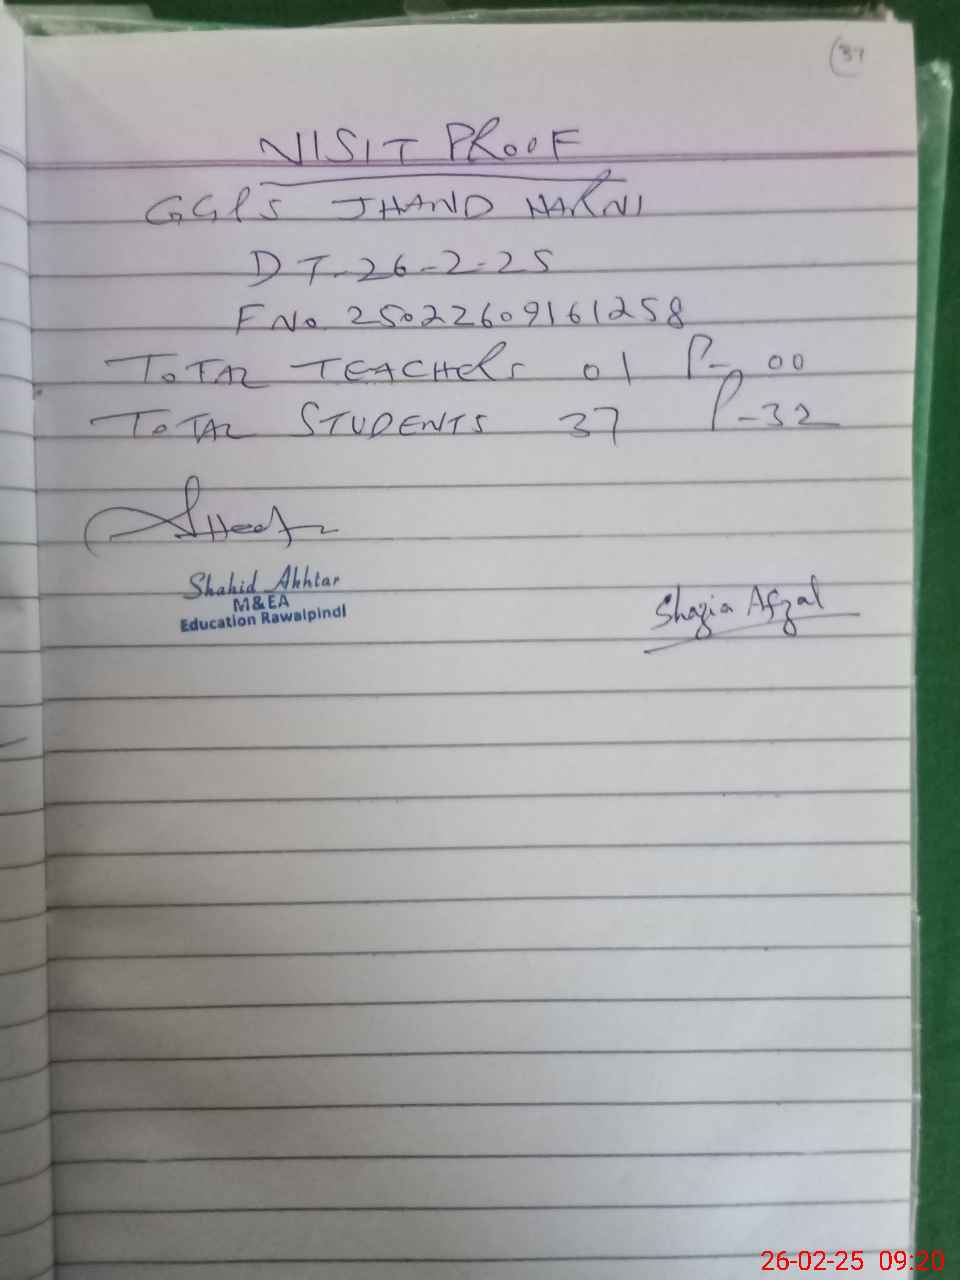 37
VISIT PROOF
GGPS JHAND NARNI
DT-26-2-25
F No. 25022609161258
TOTAL TEACHERS 01 P- 00
TOTAL STUDENTS 37 P-32
Shahid Akhtar
M&EA
Education Rawalpindi
Shazia Afzal
26-02-25 09:20